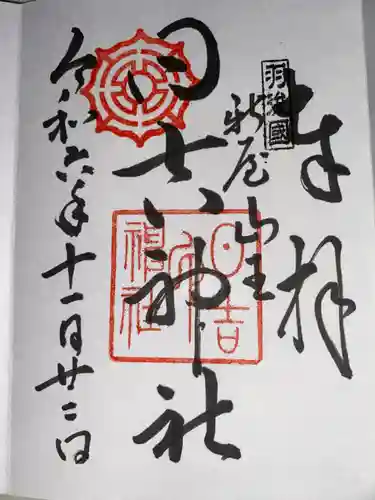 奉拝
羽後國
新屋
日吉八幡神社
日吉
神社
令和六年十一月廿二日